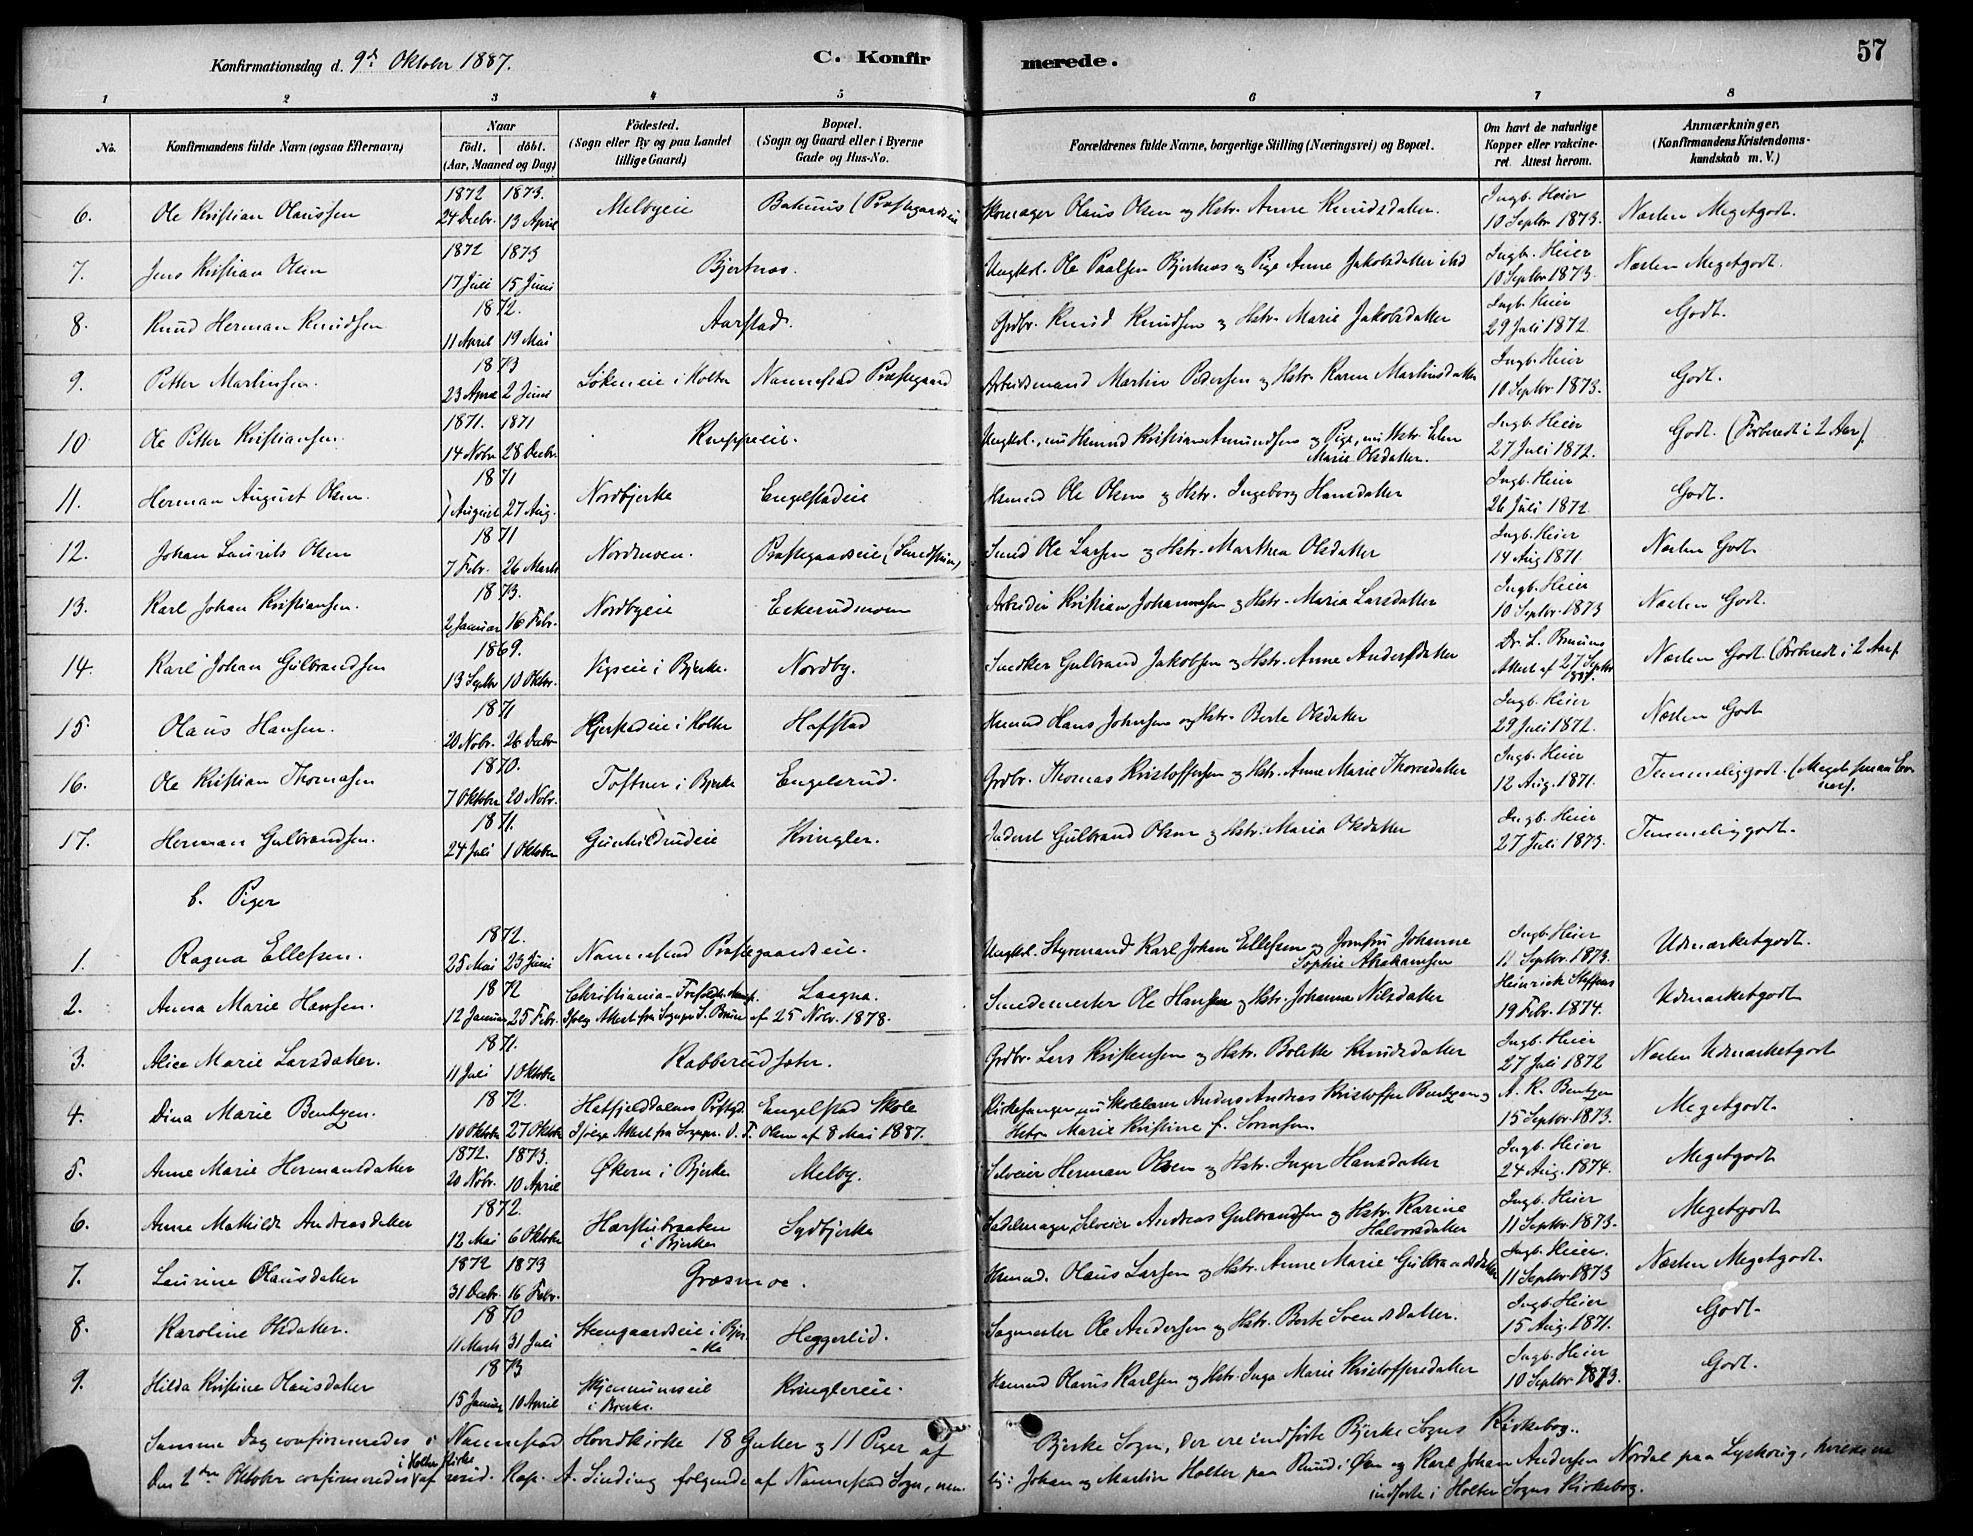 Konfirmationsdag d. 9de Oktober 1887.
C. Konfirmerede.
57
1 2 3 4 5 6 7 8
No.
Konfirmandens fulde Navn (ogsaa Efternavn)
Naar
födt. döbt.
(Aar, Maaned og Dag)
Födested.
(Sogn eller By og paa Landet
tillige Gaard)
Bopæl.
(Sogn og Gaard eller i Byerne
Gade og Hus-No.
Forældrenes fulde Navne, borgerlige Stilling (Næringsvei) og Bopæl.
Om havt de naturlige
Kopper eller vakcine-
ret. Attest herom.
Anmærkninger.
(Konfirmandens Kristendoms-
kundskab m. V.)
6. Ole Kristian Olaussen 1872 24 Decbr. 1873. 13 April Melbyeie Præstegaardseie Skomager Olaus Olsen og Hstr. Anne Knudsdatter. Ingb. Heier 10 Septbr 1873. Næsten Megetgodt.
7. Jens Kristian Olsen 1872 17 Juli 1873 15 Juni Bjertnæs. Ungkl. Ole Paulsen Bjertnæs og Pige Anne Jakobsdatter ibid Ingb. Heier 10 Septbr 1873. Næsten Megetgodt.
8. Knud Herman Knudsen 1872. 11 April 19 Mai Aarstad. Grdbr. Knud Knudsen og Hstr. Marie Jakobsdatter Ingb. Heier 29 Juli 1872. Godt.
9. Petter Martinsen. 1873 23 April 2 Juni Løkeneie i Holter Nannestad Præstegaard Arbeidsmand Martin Pedersen og Hstr. Karen Martinsdatter Ingb. Heier 10 Septbr. 1873. Godt.
10. Ole Petter Kristiansen. 1871. 14 Nobr 1871 28 Decbr. Kneppeie. Ungkl., nu Hsmnd Kristian Amundsen og Pige, nu Hstr. Elen
Marie Olsdatter. Ingb. Heier 27 Juli 1872. Godt. (Forberedt i 2 Aar).
11. Herman August Olsen. 1871 1 August 27 Aug. Nordbjerke Engelstadeie Hsmnd Ole Olsen og Hstr. Ingeborg Hansdatter Ingb. Heier 26 Juli 1872. Godt.
12. Johan Laurits Olsen 1871 7 Febr. 26 Marts Nordmoen. Præstegaardseie Smed Ole Larsen og Hstr. Marthea Olsdatter Ingb. Heier 14 Aug 1871 Næsten Godt.
13. Karl Johan Kristiansen. 1873. 2 Januar 16 Febr. Nordbyeie Eekerudmoen Arbeider Kristian Johannesen og Hstr. Maria Larsdatter Ingb. Heier 10 Septbr. 1873 Næsten Godt.
14. Karl Johan Gulbrandsen 1869. 13 Septbr 10 Oktbr. Vegseie i Bjerke. Nordby. Snedker Gulbrand Jakobsen og Hstr. Anne Andersdatter Dr. L. Attest af 27 Septbr 1887. Næsten Godt. (Forberedt i 2 Aar).
15. Olaus Hansen. 1871 20 Nobr. 26 Decbr Hjerstadeie i Holter Hafstad Hsmnd Hans Johnsen og Hstr. Berte Olsdatter Ingb. Heier 29 Juli 1872. Næsten Godt
16. Ole Kristian Thomasen 1870. 7 Oktober 20 Nobr. Toftner i Bjerke Engelsrud. Grdbr. Thomas Kristoffersen og Hstr. Anne Marie Thoresdatter Ingb. Heier 12 Aug. 1871. Temmeliggodt. (Meget smaa Evner).
17. Herman Gulbrandsen. 1871. 24 Juli 1 Oktober Gunhildrudeie Kringler. Inderst Gulbrand Olsen og Hstr. Maria Olsdatter Ingb. Heier 27 Juli 1873. Temmeliggodt.
b. Piger
1. Ragna Ellefsen. 1872. 25 Mai 23 Juni Nannestad Præstegaardseie. Ungkl. Styrmand Karl Johan Ellefsen og Jomfru Johanne
Sophie Abrahamsen Ingb. Heier 11 Septbr. 1873. Udmærketgodt.
2. Anna Marie Hansen. 1872 12 Januar 25 Febr. Christiania - Laagna. Smedemester Ole Hansen og Hstr. Johanna Nilsdatter Heinrich Steffens 19 Febr. 1874. Udmærketgodt
Ifølg Attest fra Sognepr. J. Bruun af 25 Nobr. 1878.
3. Alice Marie Larsdatter. 1871. 11 Juli 1 Oktober Rabberudsæter. Grdbr. Lars Kristensen og Hstr. Bolette Knudsdatter Ingb. Heier 27 Juli 1872 Næsten Udmærketgodt
4. Dina Marie Bentzen. 1872. 10 Oktober 27 Oktober Hatfjelddalens Præstgd. Engelstad Skole Kirkesanger nu Skolelærer Anders Andreas Kristoffer Bentzen og
Hstr. Marie Kristine f. Sørensen. A. K. Bentzen 15 Septbr. 1873. Megetgodt.
Ifølge Attest fra Sognepr. O. T. Olsen af 8 Mai 1887.
5. Anne Marie Hermansdatter 1872. 20 Nobr. 1873. 10 April Økern i Bjerke Melby. Selveier Herman Olsen og Hstr. Inger Hansdatter Ingb. Heier 24 Aug. 1874. Megetgodt
6. Anne Mathilde Andreasdatter 1872. 12 Mai 6 Oktober Hærstubraaten
i Bjerke Sydbjerke Sadelmager, Selveier Andreas Gulbrandsen og Hstr. Karine
Halvorsdatter Ingb. Heier 11 Septbr. 1873. Megetgodt
7. Laurine Olausdatter 1872 31 Decbr. 1873 16 Febr. Græsmoe. Hsmnd. Olaus Larsen og Hstr. Anne Marie Gulbrandsdatter Ingb. Heier. 11 Septbr 1873 Næsten Megetgodt.
8. Karoline Olsdatter. 1870 11 Marts 31 Juli Steengaardseie i Bjer-
ke Heggerlid. Sagmester Ole Andersen og Hstr. Berte Svendsdatter. Ingb. Heier 15 Aug. 1871. Godt.
9. Hilda Kristine Olausdatter 1873 15 Januar 10 April
i Bjerke. Kringlereie. Hsmnd Olaus Karlsen og Hstr. Inga Marie Kristoffersdatter Ingb. Heier 10 Septbr 1873. Godt.
Samme Dag confirmeredes i Nannestad Hovedkirke 18 Gutter og 11 Piger af Bjerke Sogn, der ere indførte Bjerke Sogns Kirkebog.
Den 2den Oktober confirmeredes i Holter Kirke af resid. Kap. A. Sinding følgende af Nannestad Sogn, nem-
lig: Johan og Martin Holter paa Rud i Øen og Karl Johan Andersen Nordal paa Lysherig, hvilke ere
indførte i Holter Sogns Kirkebog.